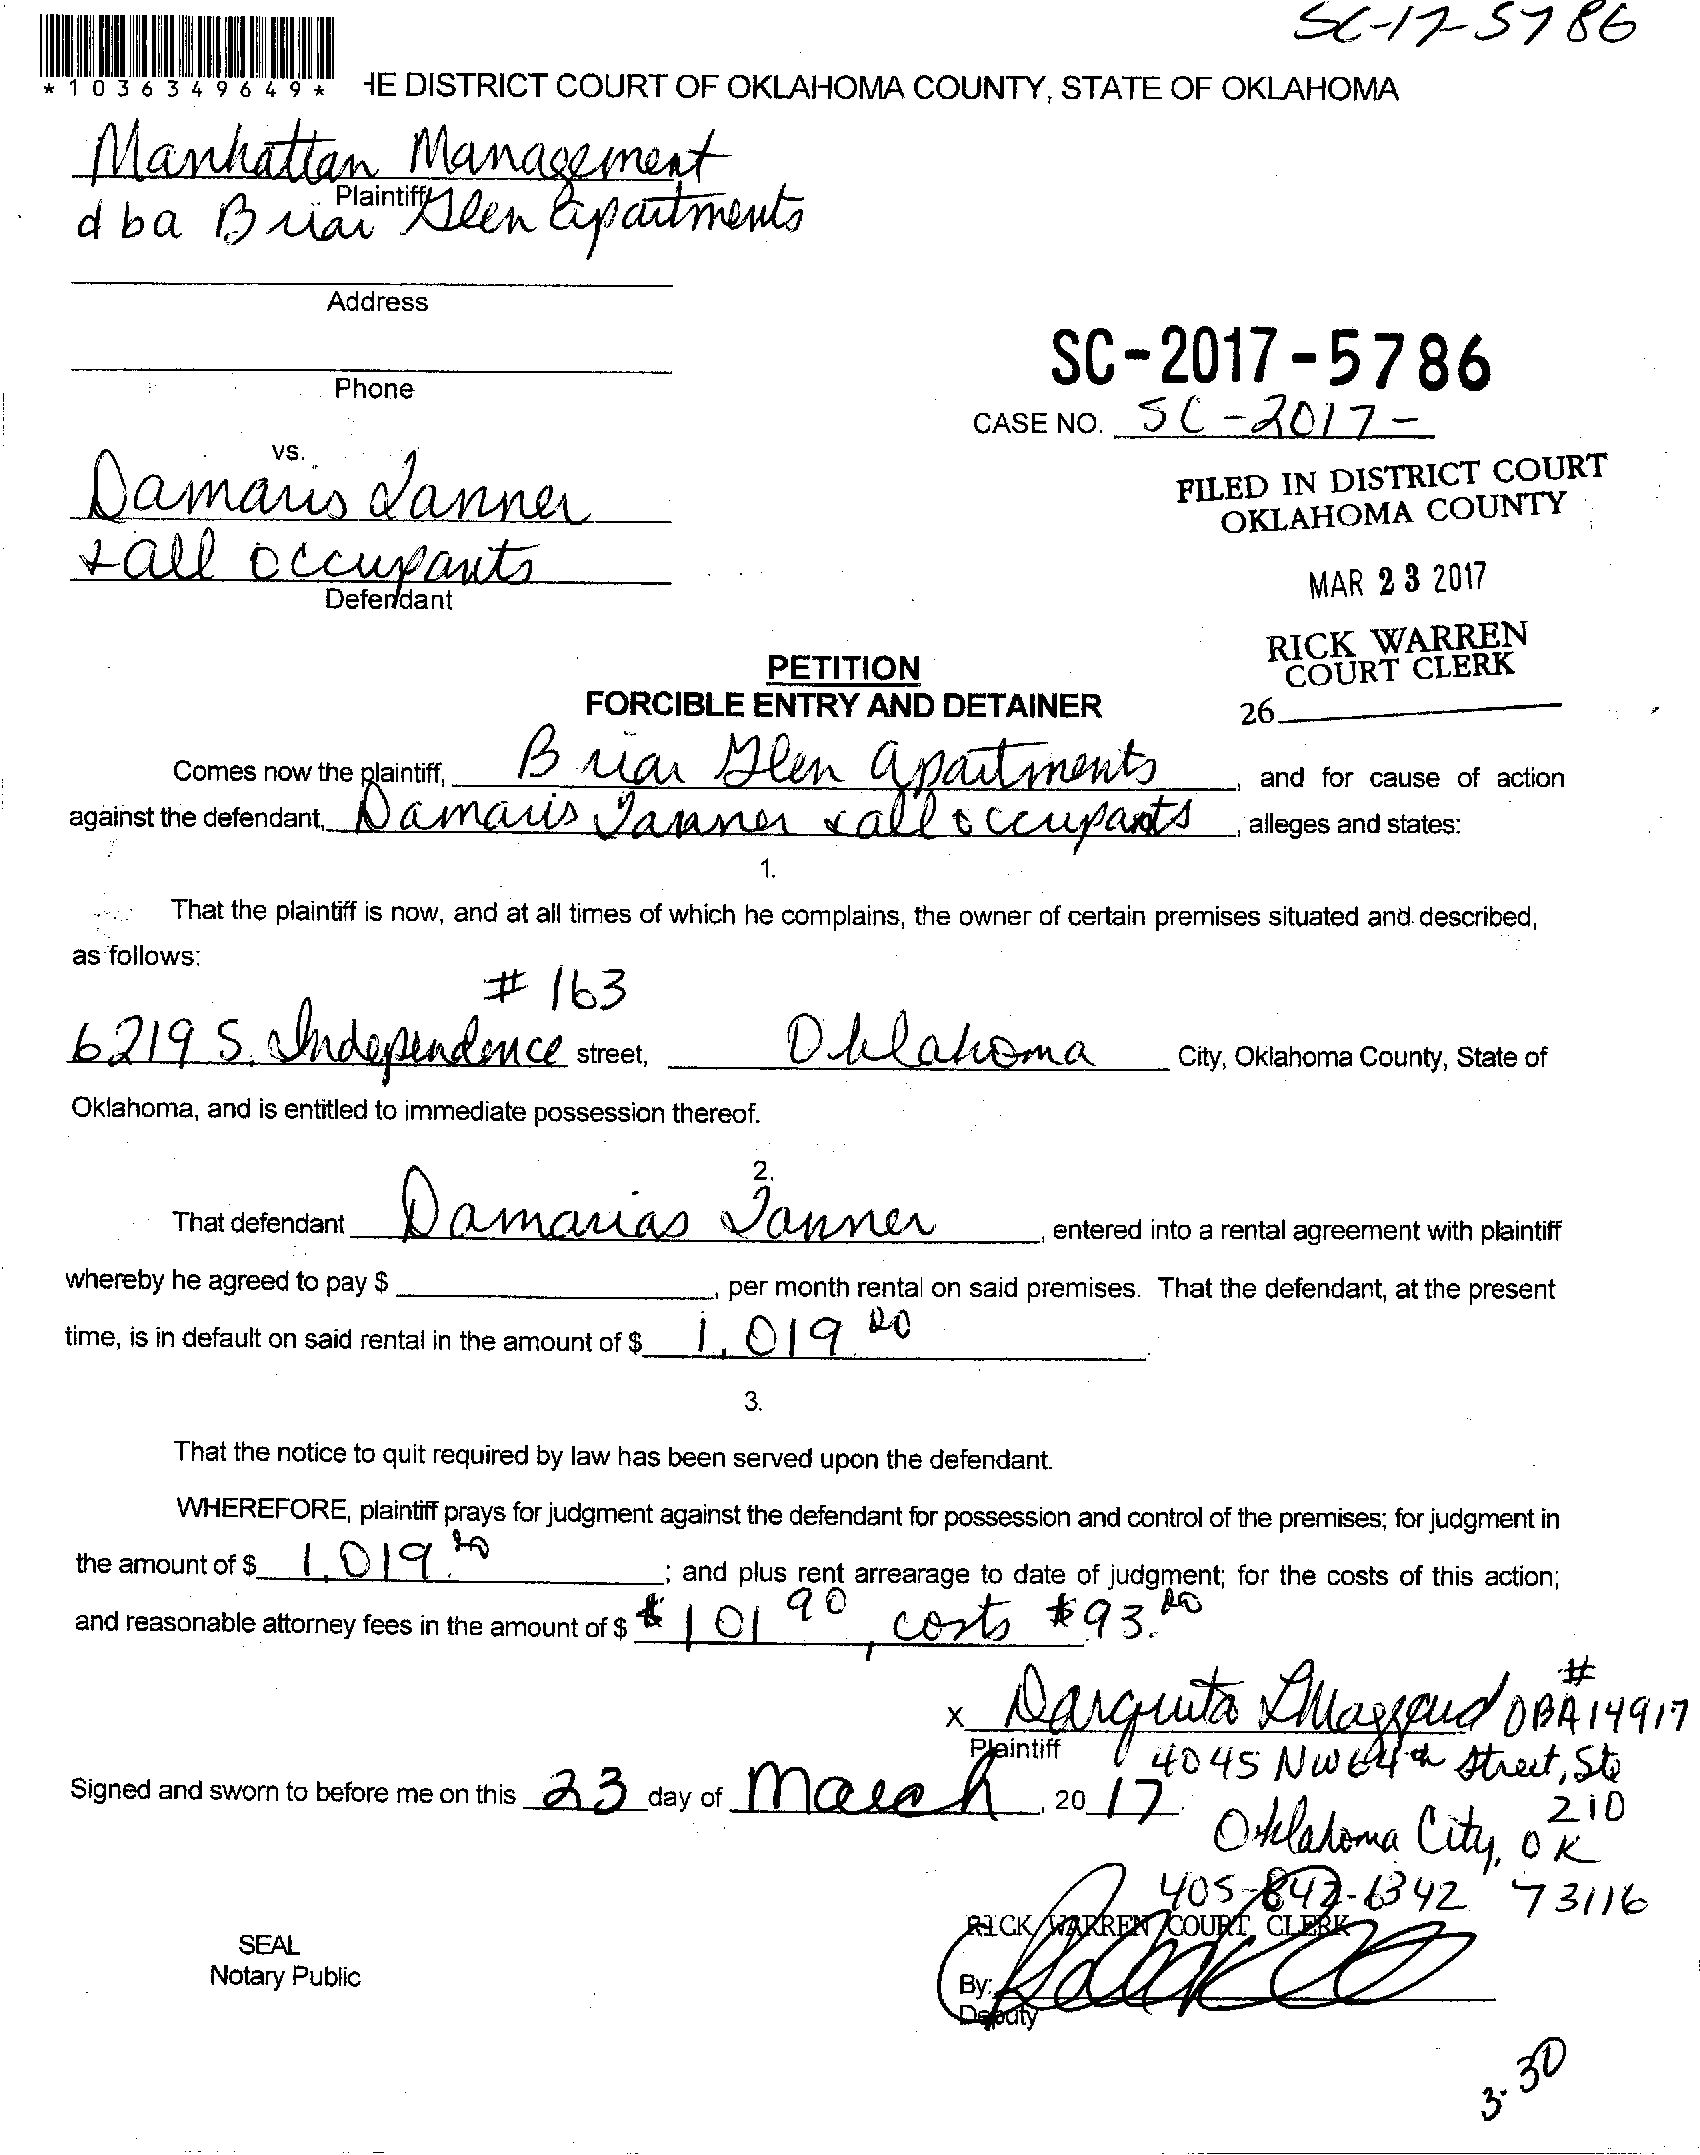 SC-17-5786
*1036349649* HE DISTRICT COURT OF OKLAHOMA COUNTY, STATE OF OKLAHOMA
Manhattan Management
Plaintiff
dba Briar Glen Apartments
Address
SC-2017-5786
Phone
CASE NO. SC-2017-
vs.
FILED IN DISTRICT COURT
OKLAHOMA COUNTY
Damaris Tanner
& all occupants
Defendant
MAR 23 2017
RICK WARREN
COURT CLERK
26
PETITION
FORCIBLE ENTRY AND DETAINER
Comes now the plaintiff, Briar Glen Apartments, and for cause of action
against the defendant, Damaris Tanner & all occupants, alleges and states:
1.
That the plaintiff is now, and at all times of which he complains, the owner of certain premises situated and described,
as follows:
# 163
6219 S. Independence street, Oklahoma City, Oklahoma County, State of
Oklahoma, and is entitled to immediate possession thereof.
2.
That defendant Damarias Tanner, entered into a rental agreement with plaintiff
whereby he agreed to pay $ , per month rental on said premises. That the defendant, at the present
time, is in default on said rental in the amount of $ 1,019.00
3.
That the notice to quit required by law has been served upon the defendant.
WHEREFORE, plaintiff prays for judgment against the defendant for possession and control of the premises; for judgment in
the amount of $ 1,019.00 ; and plus rent arrearage to date of judgment; for the costs of this action;
and reasonable attorney fees in the amount of $ $101 90, costs $93.00
x Darquita L Maggard OBA #14917
Plaintiff
4045 NW 64th Street, Ste
210
Signed and sworn to before me on this 23 day of March, 2017.
Oklahoma City, OK
405-842-6342 73116
RICK WARREN COURT CLERK
SEAL
Notary Public
By:
Deputy
3-30